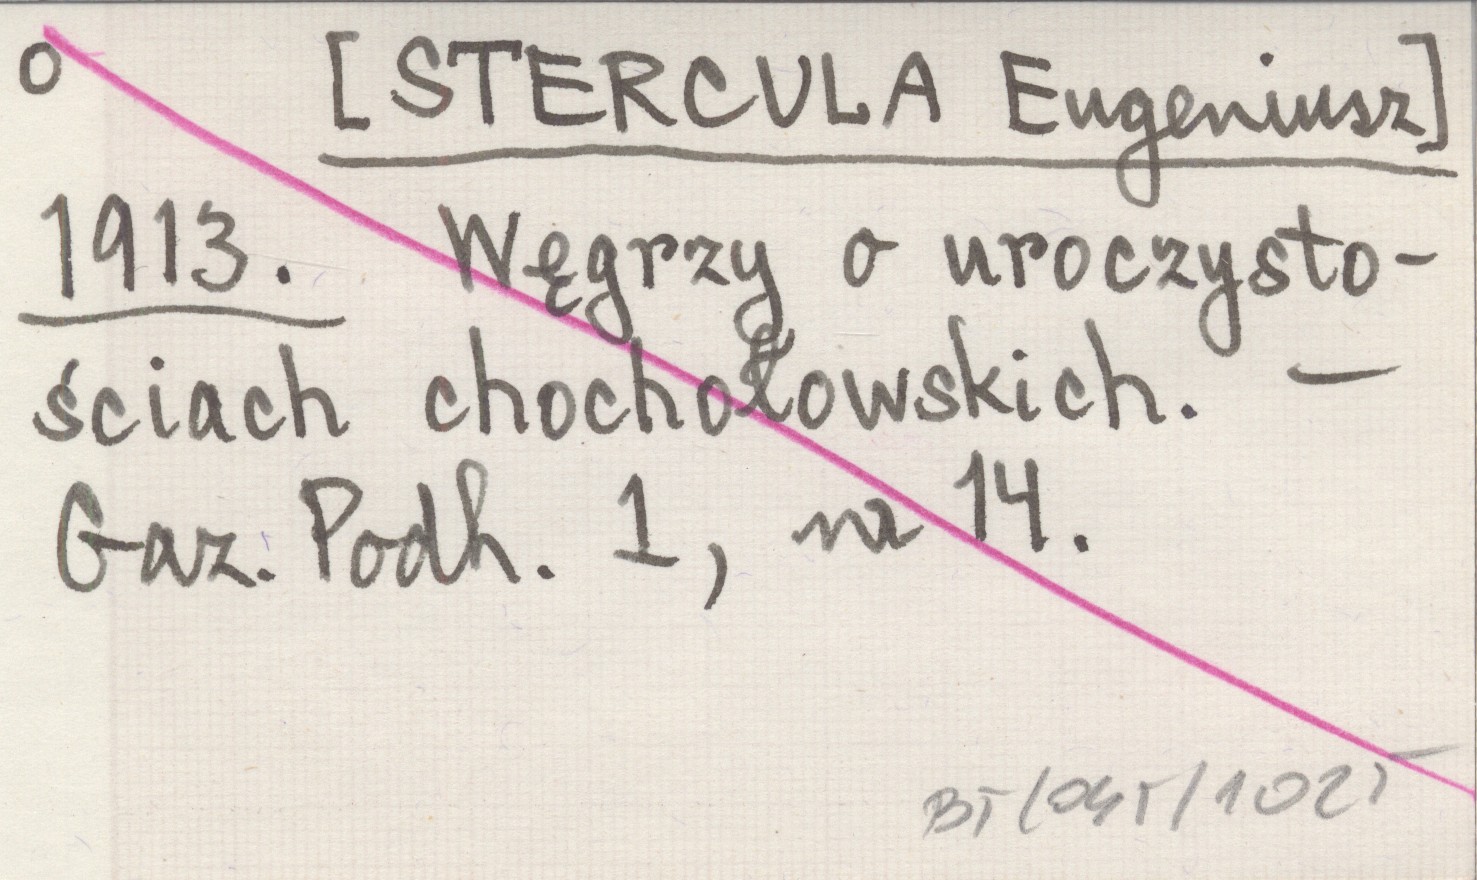 o [STERCULA Eugeniusz]
1913. Węgrzy o uroczysto-
ściach chochołowskich. —
Gaz. Podh. 1, nr 14.